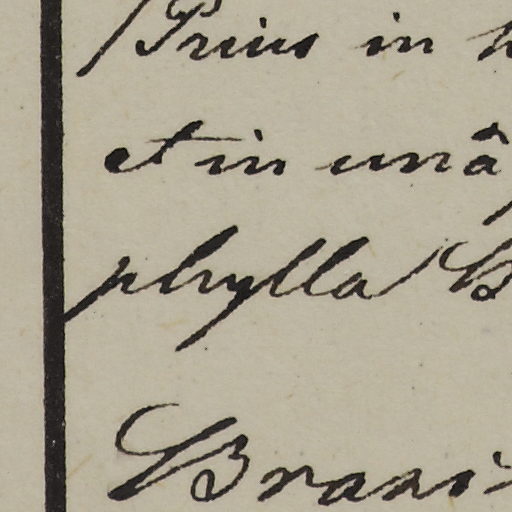 Prius in
et in unâ
phylla
Brasi